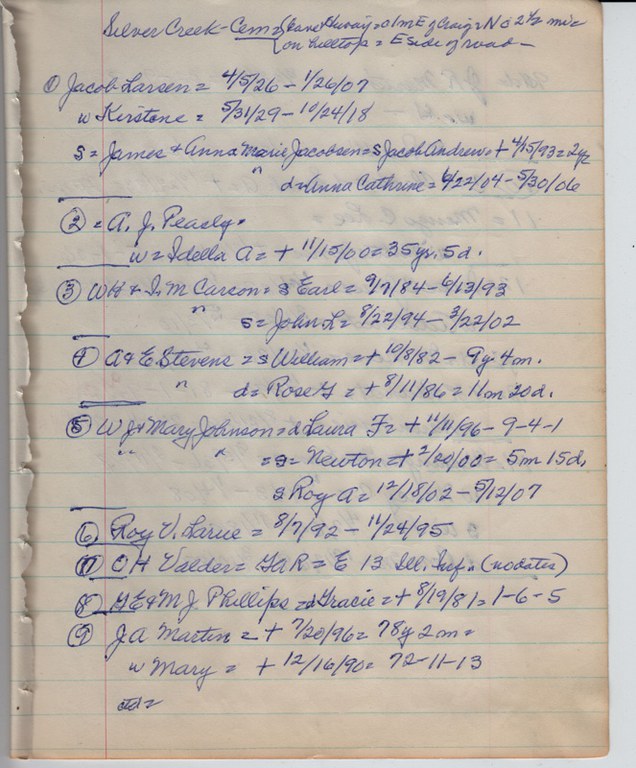 Silver Creek - Cem = (Leave Huway = 01m E of Craig = N @ 2 1/2 mi =
on hilltop = E side of road -
① Jacob Larsen = 4/5/26 - 1/26/07
w Kirstone = 5/31/29 - 10/24/18
s = James + Anna Marie Jacobsen = s Jacob Andrew = + 4/15/93 = 2 yr
" d = Anna Cathrine = 6/22/04 - 5/30/06
② = A. J. Peasly =
w = Idella A = + 11/15/00 = 35 yr. 5 d.
③ WH + I. M Carson = s Earl = 9/7/84 - 6/13/93
" s = John L = 8/22/94 - 3/22/02
④ A & E Stevens = s William = + 10/8/82 - 9 y 4 m.
" d = Rose G = + 8/11/86 = 11 m 20 d.
⑤ W J + Mary Johnson = d Laura F = + 11/11/96 - 9-4-1
" " = s = Newton = + 2/20/00 = 5 m 15 d.
s Roy A = 12/18/02 - 5/12/07
⑥ Roy V. Larue = 8/7/92 - 11/24/95
⑦ O H Valder = GaR = E 13 Ill. Inf. (no dates)
⑧ G E & M J. Phillips = d Gracie = + 8/19/81 = 1-6-5
⑨ J A Martin = + 7/20/96 = 78 y 2 m =
w Mary = + 12/16/90 = 72-11-13